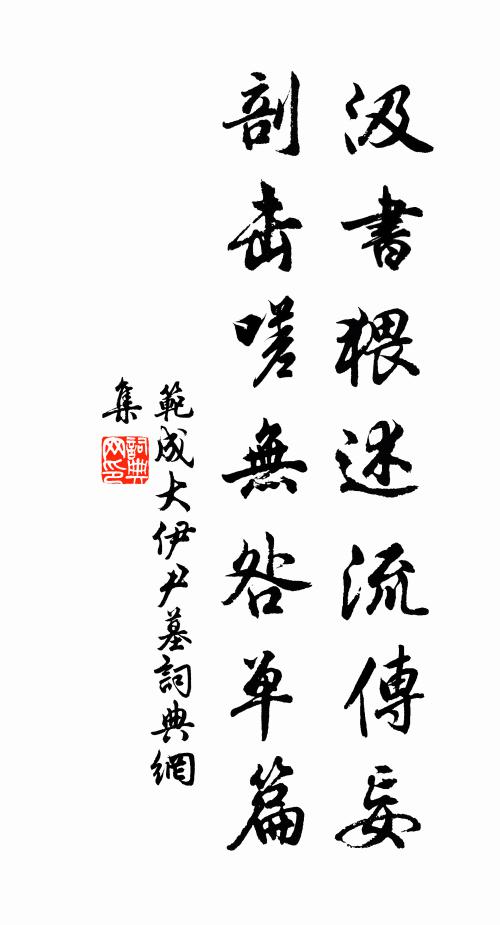 汲書猥述流傳妄
剖擊嗟無咎單篇
範成大伊尹墓詞典網
集
詞典
网印